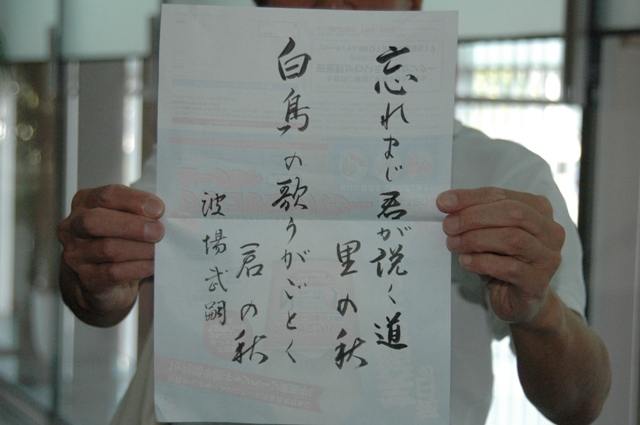 忘れまじ君が説く道
里の秋
白鳥の歌うがごとく
君の秋
波場武嗣